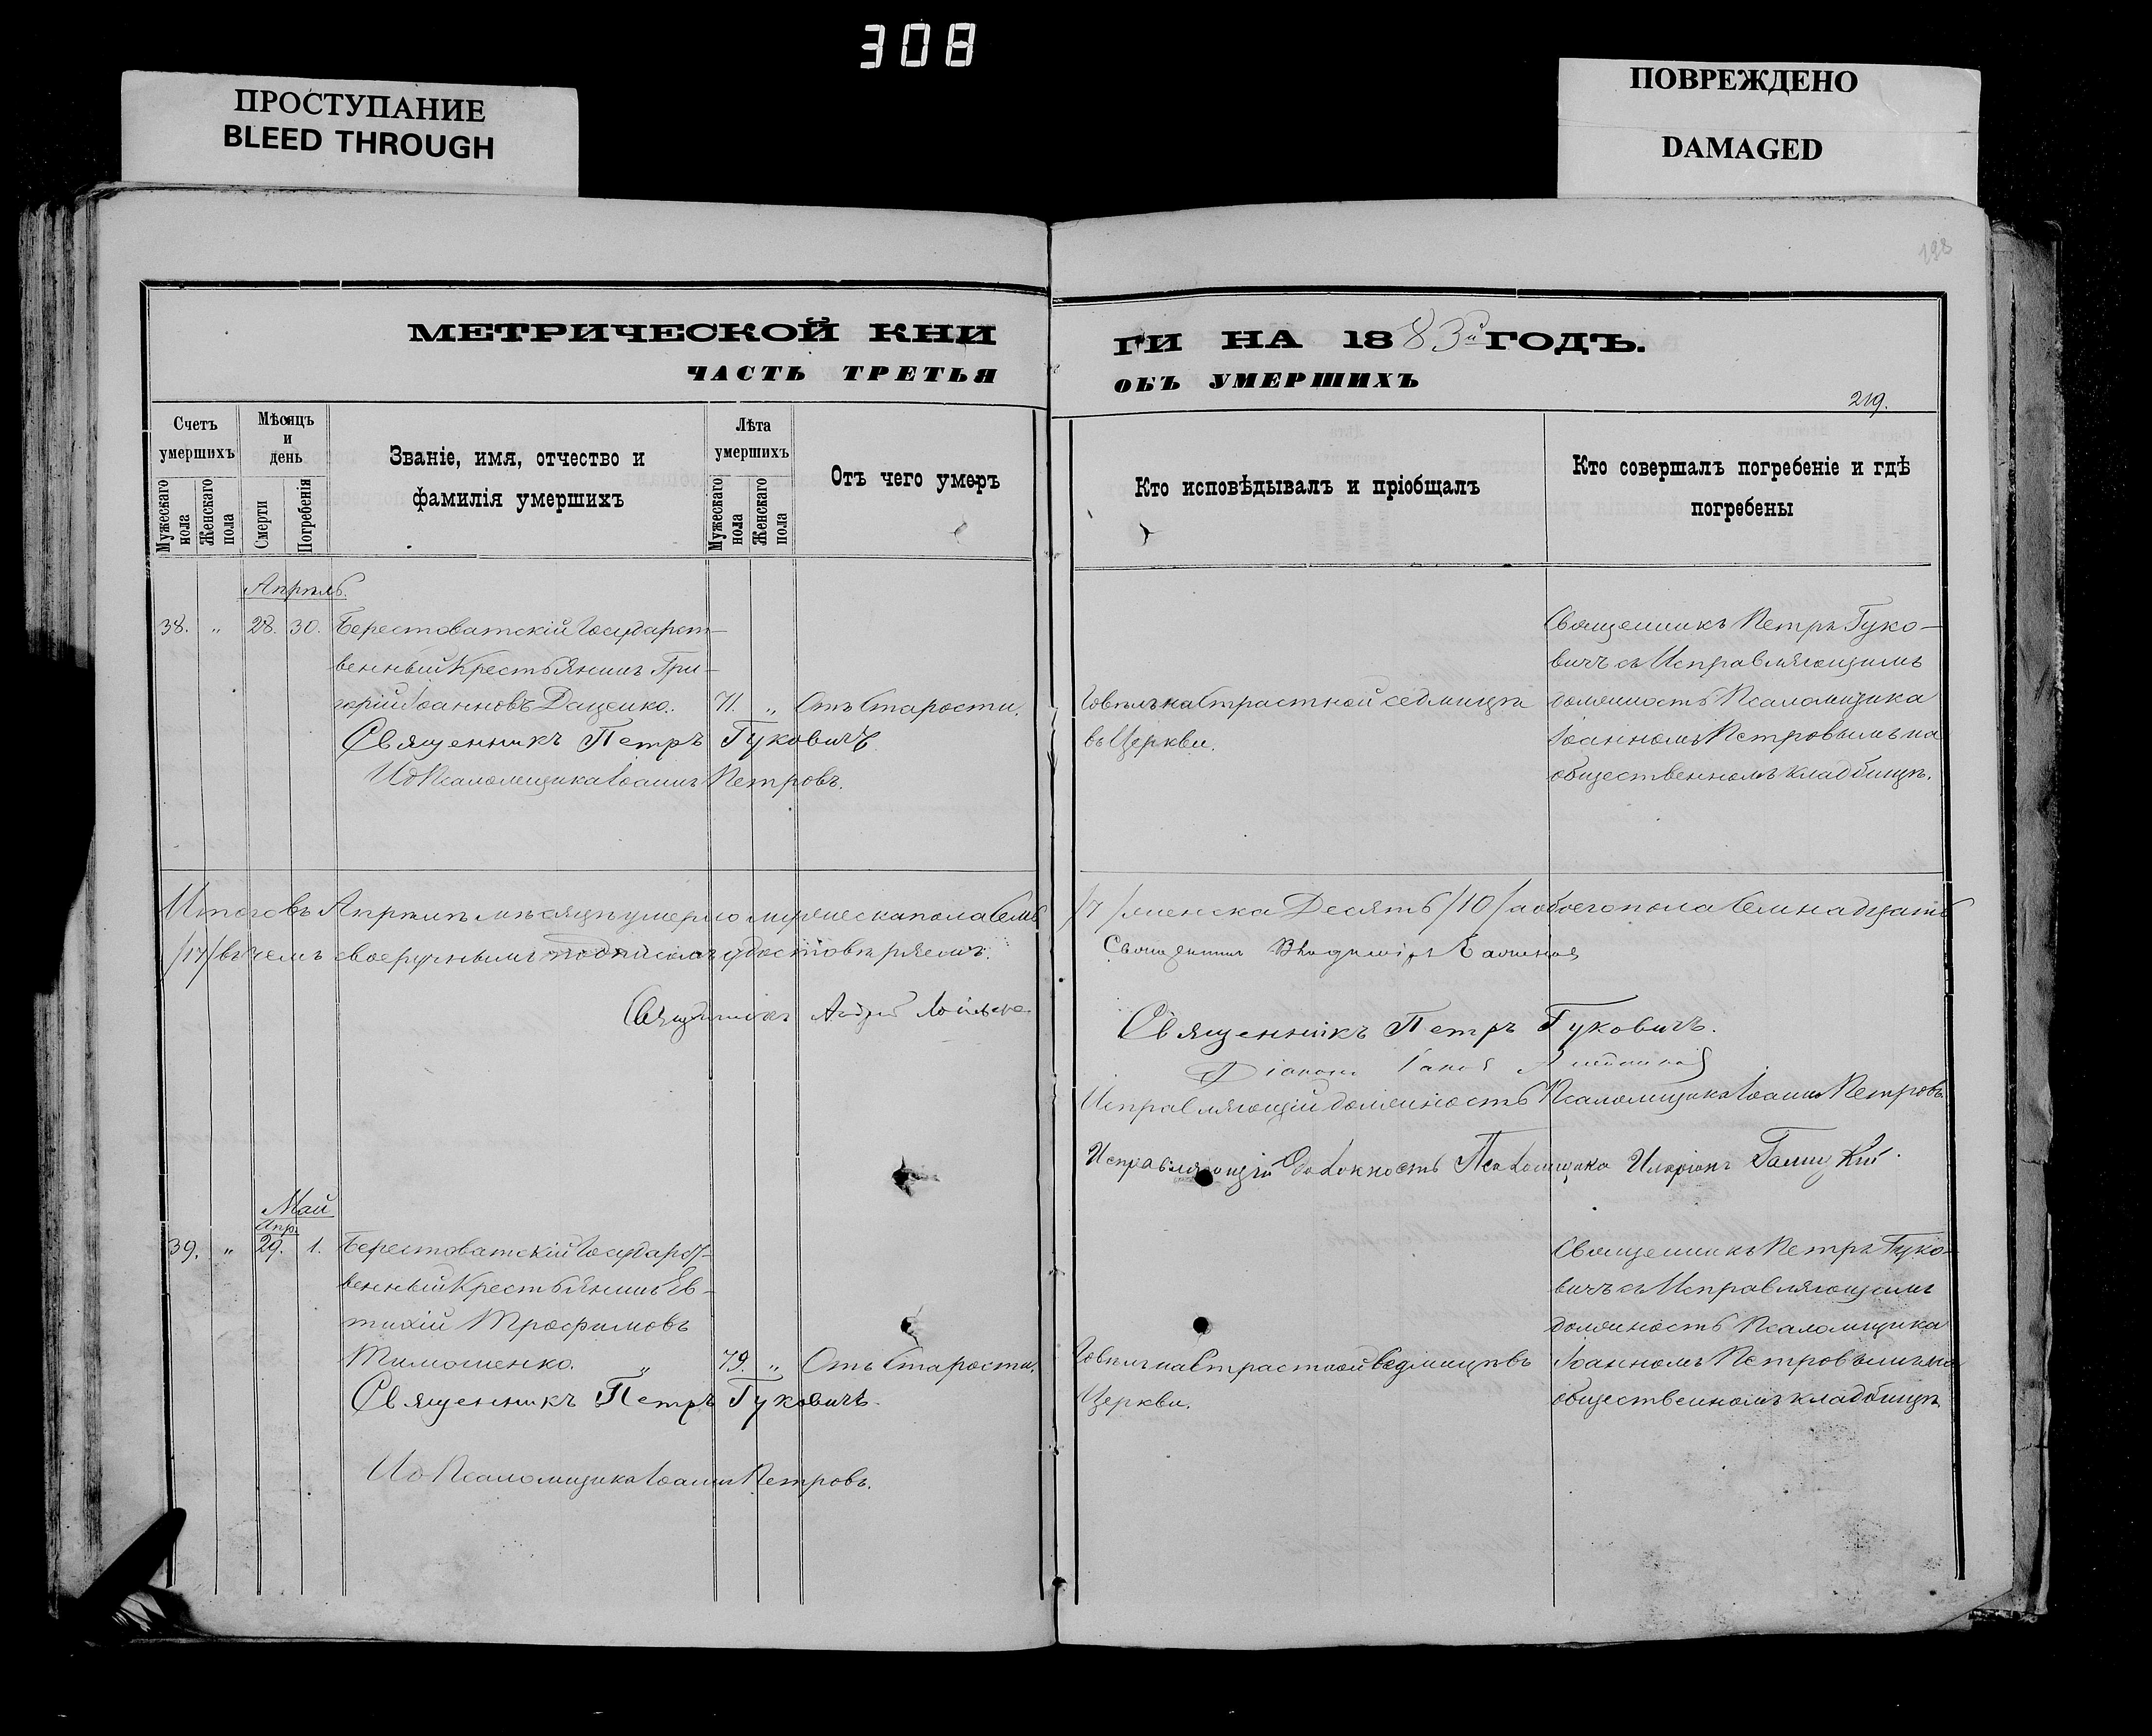 308
ПРОСТУПАНИЕ
BLEED THROUGH
ПОВРЕЖДЕНО
DAMAGED
198
МЕТРИЧЕСКОЙ КНИ
ЧАСТЬ ТРЕТЬЯ
ГИ НА 1883й ГОДЪ.
ОБЪ УМЕРШИХЪ
219.
Счетъ умершихъ
Мужескаго пола
Женскаго пола
Мѣсяцъ и день
Смерти
Погребенія
Званіе, имя, отчество и
фамилія умершихъ
Лѣта умершихъ
Мужескаго пола
Женскаго пола
Отъ чего умеръ
Кто исповѣдывалъ и пріобщалъ
Кто совершалъ погребеніе и гдѣ
погребены
Апрѣль.
38. „ 28. 30. Берестоватскій Государст-
венный Крестьянинъ Гри-
горій Іоанновъ Даценко. 71. „ Отъ Старости.
Священникъ Петръ Гуковичъ
Ид Псаломщика Іоаннъ Петровъ.
Говѣлъ на Страстной седмицѣ
въ Церкви.
Священникъ Петръ Гуко-
вичъ съ Исправляющимъ
должность Псаломщика
Іоанномъ Петровымъ на
общественномъ кладбищѣ.
Итого въ Апрѣлѣ мѣсяцѣ умерло мужеска пола Семь /7/ женска Десять /10/ а обоего пола Семнадцать
/17/ въ чемъ своеручнымъ подписомъ удостовѣряемъ.
Священникъ Владиміръ
Священникъ Андрей
Священникъ Петръ Гуковичъ.
Діаконъ
Исправляющій должность Псаломщика Іоаннъ Петровъ
Исправляющій Должность Псаломщика Иларіонъ
Май
Апр.
39. „ 29. 1. Берестоватскій Государст-
венный Крестьянинъ Ев-
тихій Трофимовъ
Тимошенко. „ 79. „ Отъ Старости.
Священникъ Петръ Гуковичъ.
Ид Псаломщика Іоаннъ Петровъ.
Говѣлъ на Страстной Седмицѣ въ
Церкви.
Священникъ Петръ Гуко-
вичъ съ Исправляющимъ
должность Псаломщика
Іоанномъ Петровымъ на
общественномъ кладбищѣ.